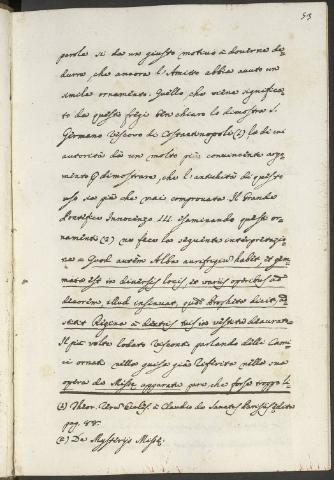 53
parole si dà un giusto motivo à doverne de-
durre, che ancora l'Amitto abbia avuto un
simile ornamento. Quello, che viene significa-
to da questi fregi ben chiaro lo dimostra S.
Germano Vescovo di Costantinopoli (1) la di cui
autorità dà un molto più convincente argo-
mento p dimostrare, che l'antichità di questo
uso sia più che mai comprovata. Il Grande
Pontefice Innocenzo III. esaminando questi or-
namenti (2) ne fece la seguente interpretazio-
ne = Quod autem Alba aurifrigium habet, et gem-
mata est in diversis locis, et variis operibus ad
decorem, illud insinuat, quod Propheta dicit, A-
stitit Regina à dextris tuis in vestitu deaurato =
Il più volte lodato Visconti parlando delli Cami-
ci ornati nella guisa già riferita nella sua
opera de Missæ apparatu pare che forse troppo li
(1) Theor. rerum Eccles. à Claudio de Sanctis Parisiis edita
pag. 88.
(2) De Mysterijs Missæ